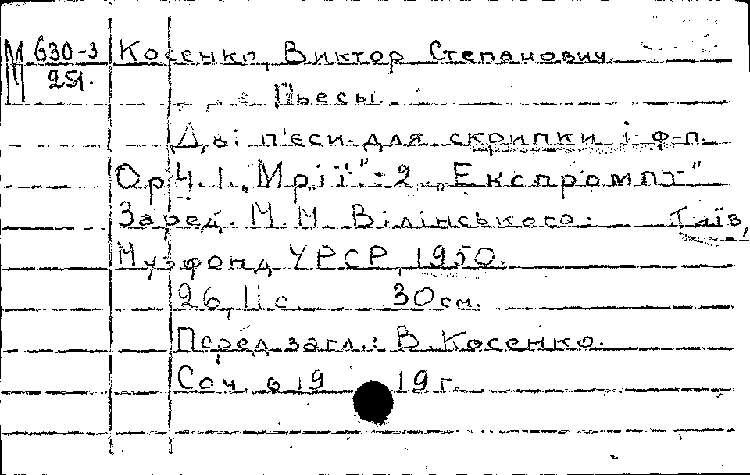 М 630-3
251.
Косенко, Виктор Степанович.
Пьесы.
Дві п'єси для скрипки і ф-п.
Ор 4. 1. „Мрії" - 2. „Експромпт"
За ред. М. М. Вілінського. Київ,
Музфонд УРСР, 1950.
26, 11 с. 30 см.
Перед загл.: В. Косенко.
Соч. в 19 19 г.